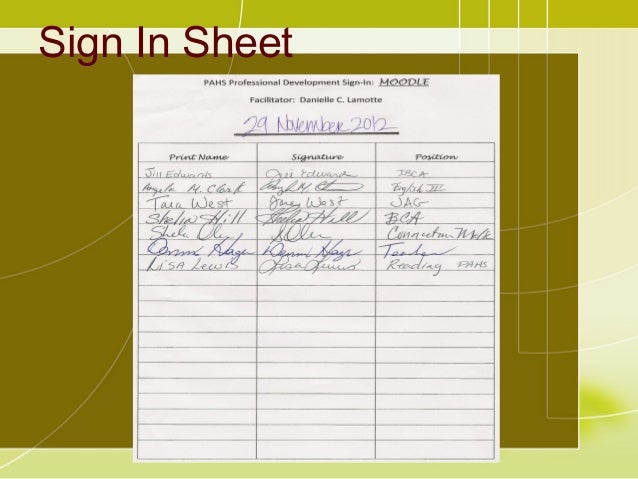 Sign In Sheet
PAHS Professional Development Sign-In: MOODLE
Facilitator: Danielle C. Lamotte
29 November 2012
Print Name Signature Position
Jill Edwards Jill Edwards IBCA
Angela M. Clark English III
Tara West Tara West JAG
Shelia Hill Shelia Hill BCA
Shela Connection Math
Teacher
Lisa Lewis Lisa Lewis Reading PAHS